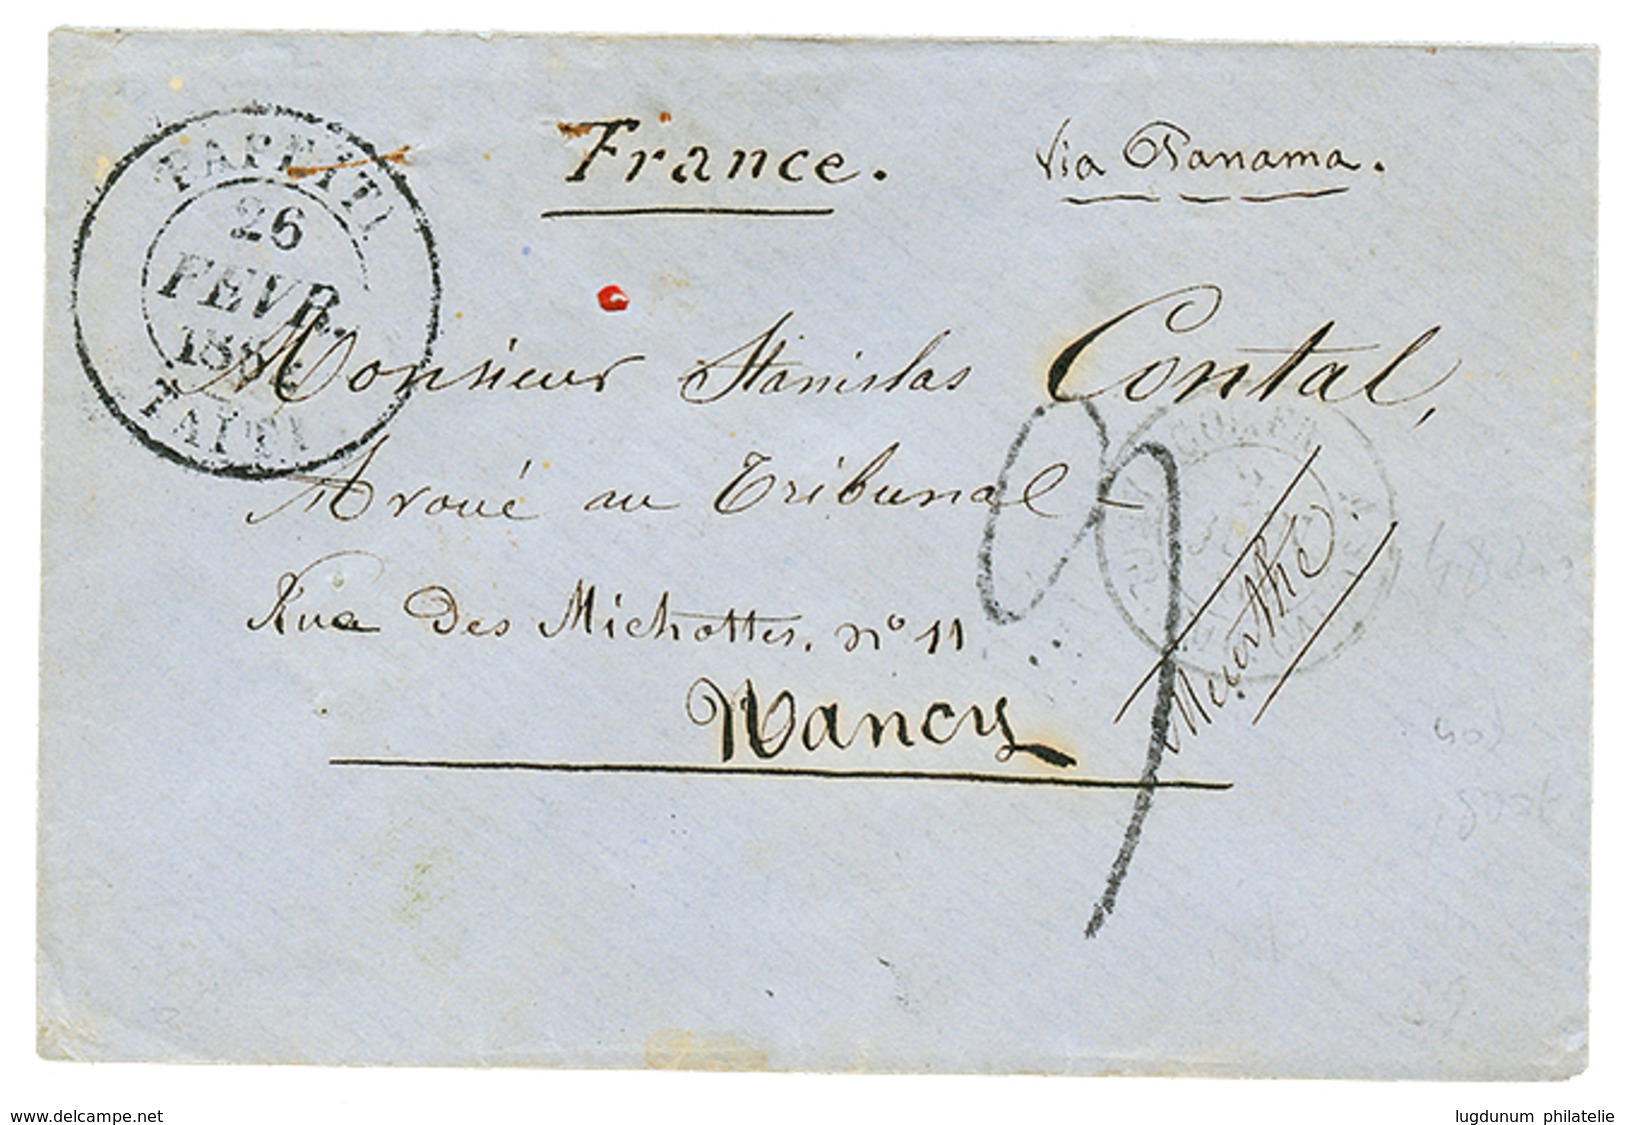 PAPEITI
26
FEVR.
TAITI
France.
Via Panama.
Monsieur Stanislas Contal,
Avoué au Tribunal
Rue des Michottes, n° 11
Nancy
Meurthe
www.delcampe.net
lugdunum philatelie